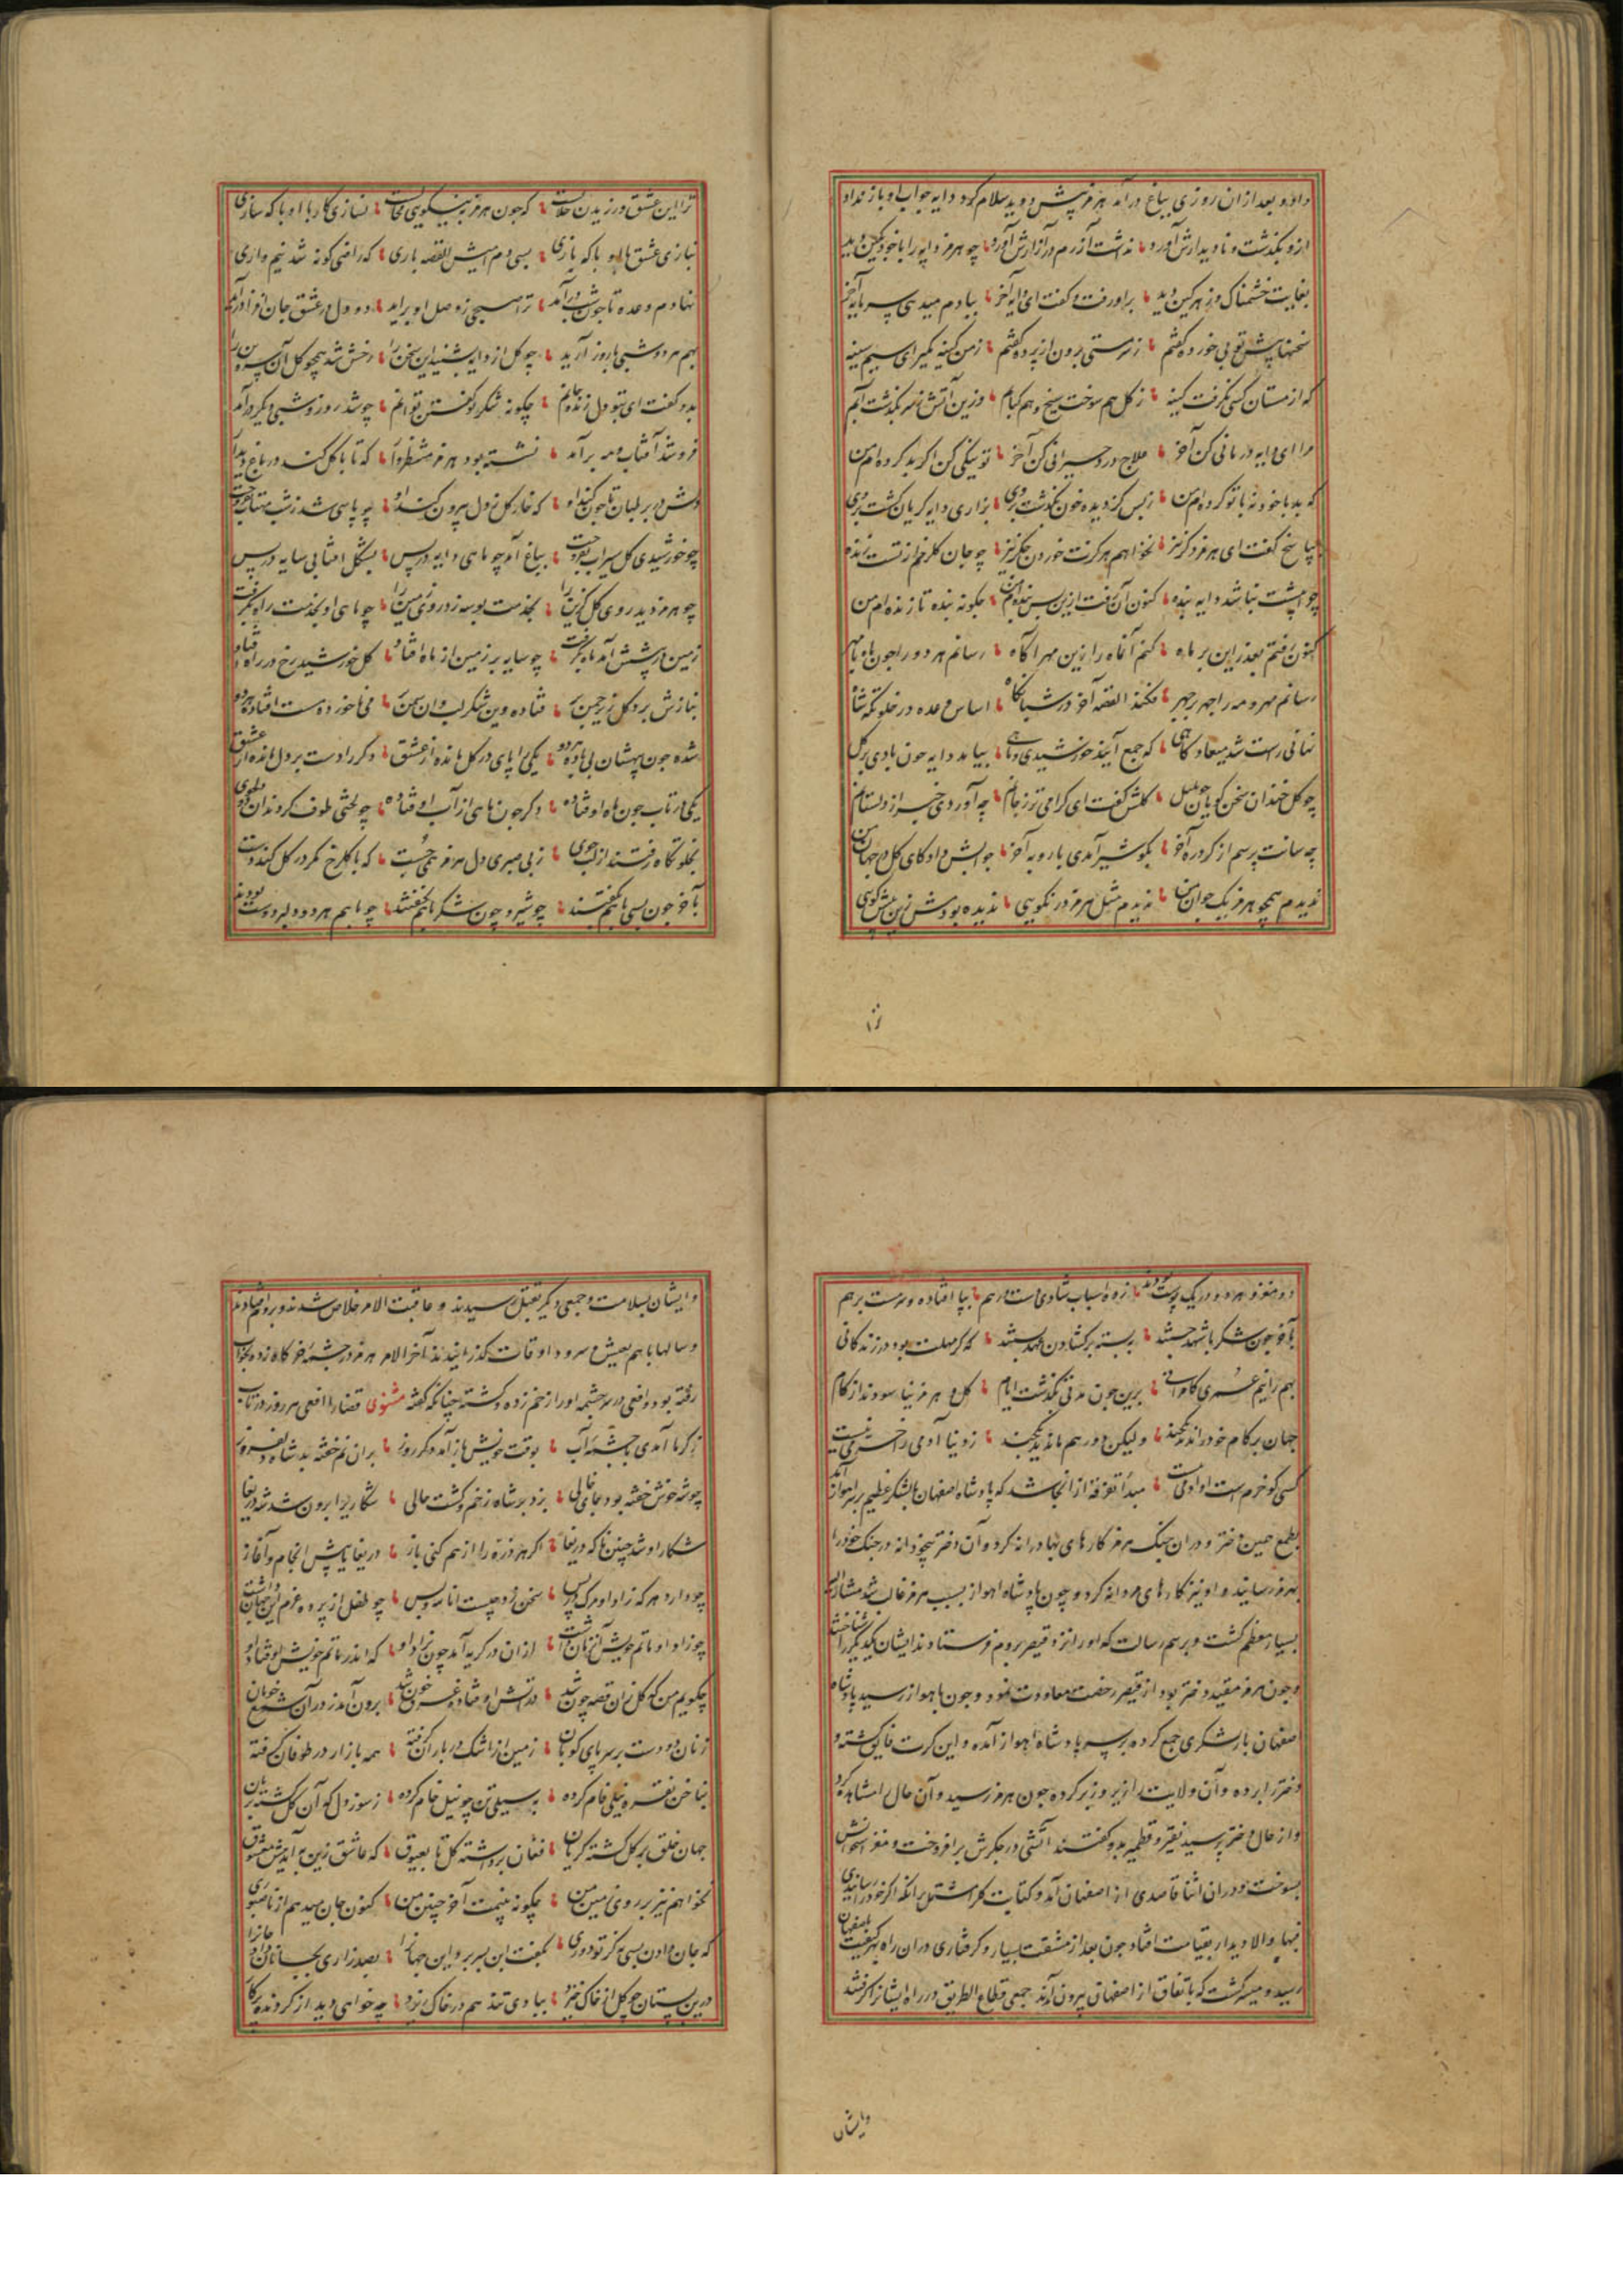 داد و بعد از ان روزی بباغ درآمد هرمز پیش دوید سلام کرد دایه جواب او باز نداد
ازو بگذشت و نادیدارش آورد نداشت آزرم در آزارش آورد چو هرمز دایه را با خود بکین دید
بغایت خشمناک و زهرگین دید براورفت و گفت ای دایه آخر ببادم میدهی سرمایه آخر
سخنها پیش تو بی خورده گفتم ز سرمستی برون از پرده گفتم ز من کینه مگیر ای سیم سینه
که از مستان کسی نگرفت کینه ز گل هم سوخت سیخ و هم کبابم وزین آتش ز سر بگذشت آبم
مرا ای دایه درمانی کن آخر علاج درد حیرانی کن آخر تو نیکی کن اگر بد کرده ام من
که بد با خود نه با تو کرده ام من ز بس کز دیده خون بگذشت بر وی بزاری دایه گریان گشت بر وی
بپاسخ گفت ای هرمز دگر نیز نخواهم هرگزت خوردن جگر نیز چو جان گلرخم از تست زنده
چو ایشت نباشد دایه بنده کنون آن رفت ازین پس بنده ام من چگونه بنده تا زنده ام من
کنون رفتم بعذر این بر ماه کنم آن ماه را زین مهر آگاه رسانم هر دو را چون ماه با مهر
رسانم مهر و مه را چهر بر چهر فکند القصه آخر در شبانگاه اساس وعده در خلوتگه شاه
نهانی راست شد میعادگاهی که جمع آیند خورشیدی و ماهی بیامد دایه چون بادی بر گل
چو گل خندان سخن گویان چو بلبل گلش گفت ای گرامی تر ز جانم چه آوردی خبر از دلستانم
چه سانت پرسم از گرد ره آخر بگو شیر آمدی یا روبه آخر جوابش داد کای گل در جهان من
ندیدم همچو هرمز یک جوان من ندیدم مثل هرمز در نکویی ندیده بودمش زین پیش گویی
ترا این عشق ورزیدن حلالست که چون هرمز بنیکویی محالست نسازی کار با او با که سازی
نبازی عشق با او با که بازی بسی دم دادمش القصه باری که راضی گونه شد نیم واری
نهادم وعده تا چون شب درآمد ترا صبحی ز وصل او برآید دو دل در عشق جان افزا درآمد
بهم هر دو شبی با روز آرید چو گل از دایه بشنید این سخن را رخش شد همچو گل آن سیم تن را
بدو گفت ای بتو دل زنده جانم چگونه شکر تو گفتن توانم چو شد روز و شبی دیگر درآمد
فرو شد آفتاب و مه برآمد نشسته بود هرمز منتظروار که تا با گل کند در باغ دیدار
دلش در بر طپان تا چون کند او که خار گل ز دل بیرون کند او چو پاسی شد ز شب مهتاب بفروخت
چو خورشیدی گل سیراب بفروخت بباغ آمد چو ماهی دایه در پس بشکل آفتابی سایه در پس
چو هرمز دید روی گل گزین را بخدمت بوسه زد روی زمین را چو ماهی او بخدمت راه بگرفت
زمین از پیشش آمد ماه بگرفت چو سایه بر زمین از ماه فتاد او گل خورشید رخ در راه فتاد او
بنازش برد گل زنجیر بر فتاده وین شکر لب وان سمن بر می ناخورده مست افتاده هر دو
شده چون بیهشان بی باده هر دو یکی را پای در گل مانده از عشق دگر را دست بر دل مانده از عشق
یکی در تاب چون ماه اوفتاده دگر چون ماهی از آب اوفتاده چو لختی طوف کردند آن دو دلجوی
بخلوتگاه رفتند از لب جوی ز بی صبری دل هرمز همی جست که با گلرخ کمر در گل کند دست
بآخر چون بسی با هم بگفتند چو شیر و چون شکر با هم بخفتند چو با هم هر دو دلبر دوست بودند
دو مغز هر دو در یک پوست بودند زده اسباب شادی دست در هم بپا افتاده و سرمست بر هم
بآخر چون شکر با شهد جستند بر بسته بر گشادن عهد بستند که گر مهلت بود در زندگانی
بهم رانیم عمری کامرانی برین چون مدتی بگذشت ایام گل و هرمز نیاسودند از کام
جهان بر کام خود راندند یکچند ولیکن دور هم ماندند یکچند ز دنیا آدمی را خرمی نیست
کسی کو خرم است او آدمی نیست مبدأ تفرقه از انجا شد که پادشاه اصفهان با لشکر عظیم بر سر اهواز آمد
بطمع همین دختر و در ان جنگ هرمز کارهای بهادرانه کرد و آن دختر نیز خود را نه در جنگ خود را
بهرمز رسانید و او نیز کارهای مردانه کرد و چون پادشاه اهواز بسبب هرمز غالب شد مشارالیه
بسیار معظم گشت و برسم رسالت که او را نزد قیصر بروم فرستادند ایشان یکدیگر را شناختند
و چون هرمز مقید دختر بود از قیصر رخصت معاودت نمود و چون باهواز رسید پادشاه
اصفهان باز لشکری جمع کرده بر سر پادشاه اهواز آمده و این کرت فایق گشته و
دختر را برده و آن ولایت را زیر و زبر کرده چون هرمز رسید و آن حال را مشاهده کرد
و از حال دختر پرسید نقیر و قطمیر بدو گفتند آتشی در جگرش برافروخت و مغز استخوانش
بسوخت و در ان اثنا قاصدی از اصفهان آمد و کتابت گل مشتمل بر انکه اگر خود را رسانیدی
فبها والا دیدار بقیامت افتاد چون بعد از مشقت بسیار و گرفتاری در ان راه بهر کیفیت باصفهان
رسید و میسر گشت که باتفاق از اصفهان بیرون آمدند جمعی قطاع الطریق در راه ایشان را گرفتند
وایشان
و ایشان بسلامت و جمعی دیگر بقتل رسیدند و عاقبت الامر خلاص شدند و بروم افتادند
و سالها با هم بعیش و سرود اوقات گذرانیدند آخر الامر هرمز در چشمه خرگاه زده بخواب
رفته بود و افعی در سر چشمه او را زخم زده و کشته چنانکه گفته مثنوی قضا را افعی هر روز در تاب
ز گرما آمدی با چشمه آب بوقت خویش باز آمد دگر روز بران نم خفته بد شاه دلفروز
چو شه خوش خفته بود و جای خالی بزد بر شاه زخم و کشت حالی شکاریرا برون شد شه دریغا
شکار او شد چنین ناگه دریغا اگر هر ذره را از هم کنی باز دریغا بینیش انجام و آغاز
چو دارد هر که زاد او مرگ در پس سخن زو چیست انا لله و بس چو طفل از پرده عزم این جهان داشت
چو زاد او ماتم خویش آن زمان داشت از ان در گریه آمد چون بزاد او که اندر ماتم خویش اوفتاد او
چگویم من که گل زان قصه چون شد در آتش اوفتاد و غرق خون شد برون آمد ز در آن شمع خوبان
زنان دو دست بر سر پای کوبان زمین از اشک در باران گرفته همه بازار در طوفان گرفته
بناخن نقره نیلی خام کرده بسیلی تن چو نیل خام کرده ز سوز دل که آن گل گشته بریان
جهان خلق بر گل گشته گریان فغان برداشته گل تا بعیوق که عاشق زین به آید پیش معشوق
نخواهم نیز بر روی زمین من چگونه بینمت آخر چنین من کنون جان میدهم از ناصبوری
که جان دادن بسی به کز تو دوری بگفت این بر سر و این جهان را بصد زاری بجانان داد جان را
درین بستان چو گل از خاک خیزد ببادی تند هم در خاک ریزد چه خواهی دید از گردنده پرگار